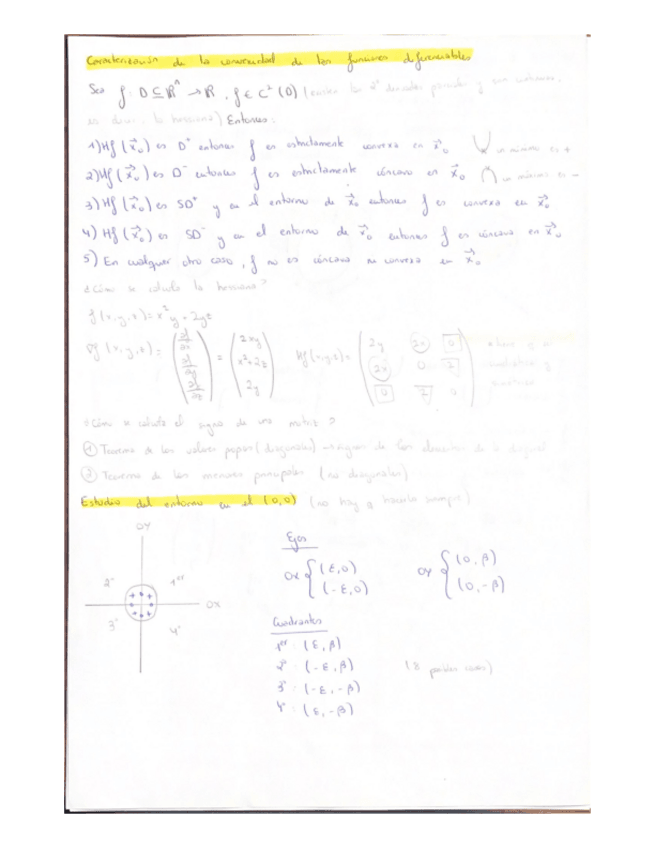 Caracterización de la convexidad de las funciones diferenciables
Sea f: D ⊆ ℝⁿ → ℝ, f ∈ C² (D) (existen las 2ª derivadas parciales y son continuas,
es decir, la hessiana) Entonces:
1) Hf (x⃗₀) es D⁺ entonces f es estrictamente convexa en x⃗₀ un mínimo es +
2) Hf (x⃗₀) es D⁻ entonces f es estrictamente cóncava en x⃗₀ un máximo es −
3) Hf (x⃗₀) es SD⁺ y en el entorno de x⃗₀ entonces f es convexa en x⃗₀
4) Hf (x⃗₀) es SD⁻ y en el entorno de x⃗₀ entonces f es cóncava en x⃗₀
5) En cualquier otro caso, f no es cóncava ni convexa en x⃗₀
¿Cómo se calcula la hessiana?
f(x,y,z) = x²y + 2yz
∇f (x,y,z) = (∂f/∂x, ∂f/∂y, ∂f/∂z) = (2xy, x²+2z, 2y) Hf(x,y,z) = (2y 2x 0 / 2x 0 2 / 0 2 0)
¿Cómo se calcula el signo de una matriz?
① Teorema de los valores propios (diagonales) → signos de los elementos de la diagonal
② Teorema de los menores principales (no diagonales)
Estudio del entorno en el (0,0) (no hay q hacerlo siempre)
OY
2º 1er
OX
3º 4º
Ejes
OX { (ε,0) (-ε,0) OY { (0,β) (0,-β)
Cuadrantes
1er: (ε,β)
2º: (-ε,β) (8 posibles casos)
3º: (-ε,-β)
4º: (ε,-β)